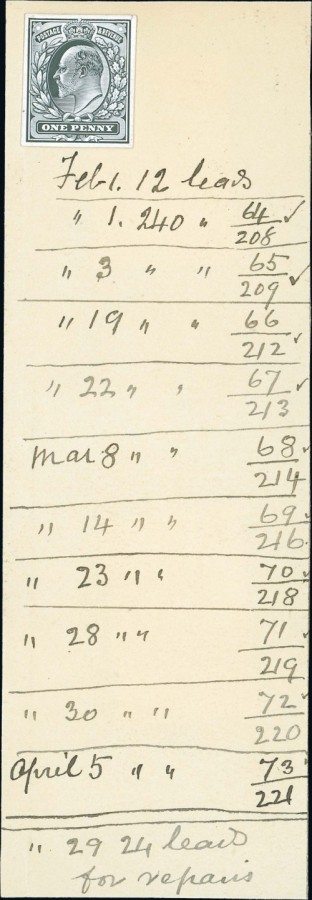 POSTAGE & REVENUE
ONE PENNY
Feb 1. 12 leads
" 1. 240 " 64/208 ✓
" 3 " " 65/209 ✓
" 19 " " 66/212 ✓
" 22 " " 67/213 ✓
Mar 8 " " 68/214 ✓
" 14 " " 69/216 ✓
" 23 " " 70/218 ✓
" 28 " " 71/219 ✓
" 30 " " 72/220 ✓
April 5 " " 73/221 ✓
" 29 24 leads
for repairs